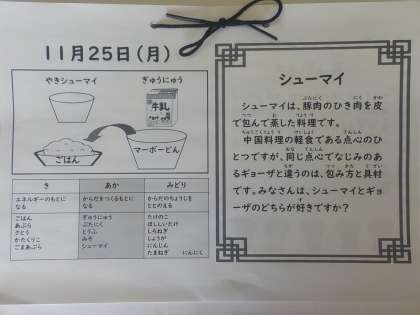 11月25日(月)
やきシューマイ
ぎゅうにゅう
牛乳
ごはん
マーボーどん
き
あか
みどり
エネルギーのもとに
なる
からだをつくるもとに
なる
からだのちょうしを
ととのえる
ごはん
あぶら
さとう
かたくりこ
ごまあぶら
ぎゅうにゅう
ぶたにく
とうふ
みそ
シューマイ
たけのこ
ほししいたけ
しろねぎ
しょうが
にんじん
たまねぎ にんにく
シューマイ
シューマイは、豚肉のひき肉を皮
で包んで蒸した料理です。
中国料理の軽食である点心のひ
とつですが、同じ点心でなじみのあ
るギョーザと違うのは、包み方と具材
です。みなさんは、シューマイとギョ
ーザのどちらが好きですか?